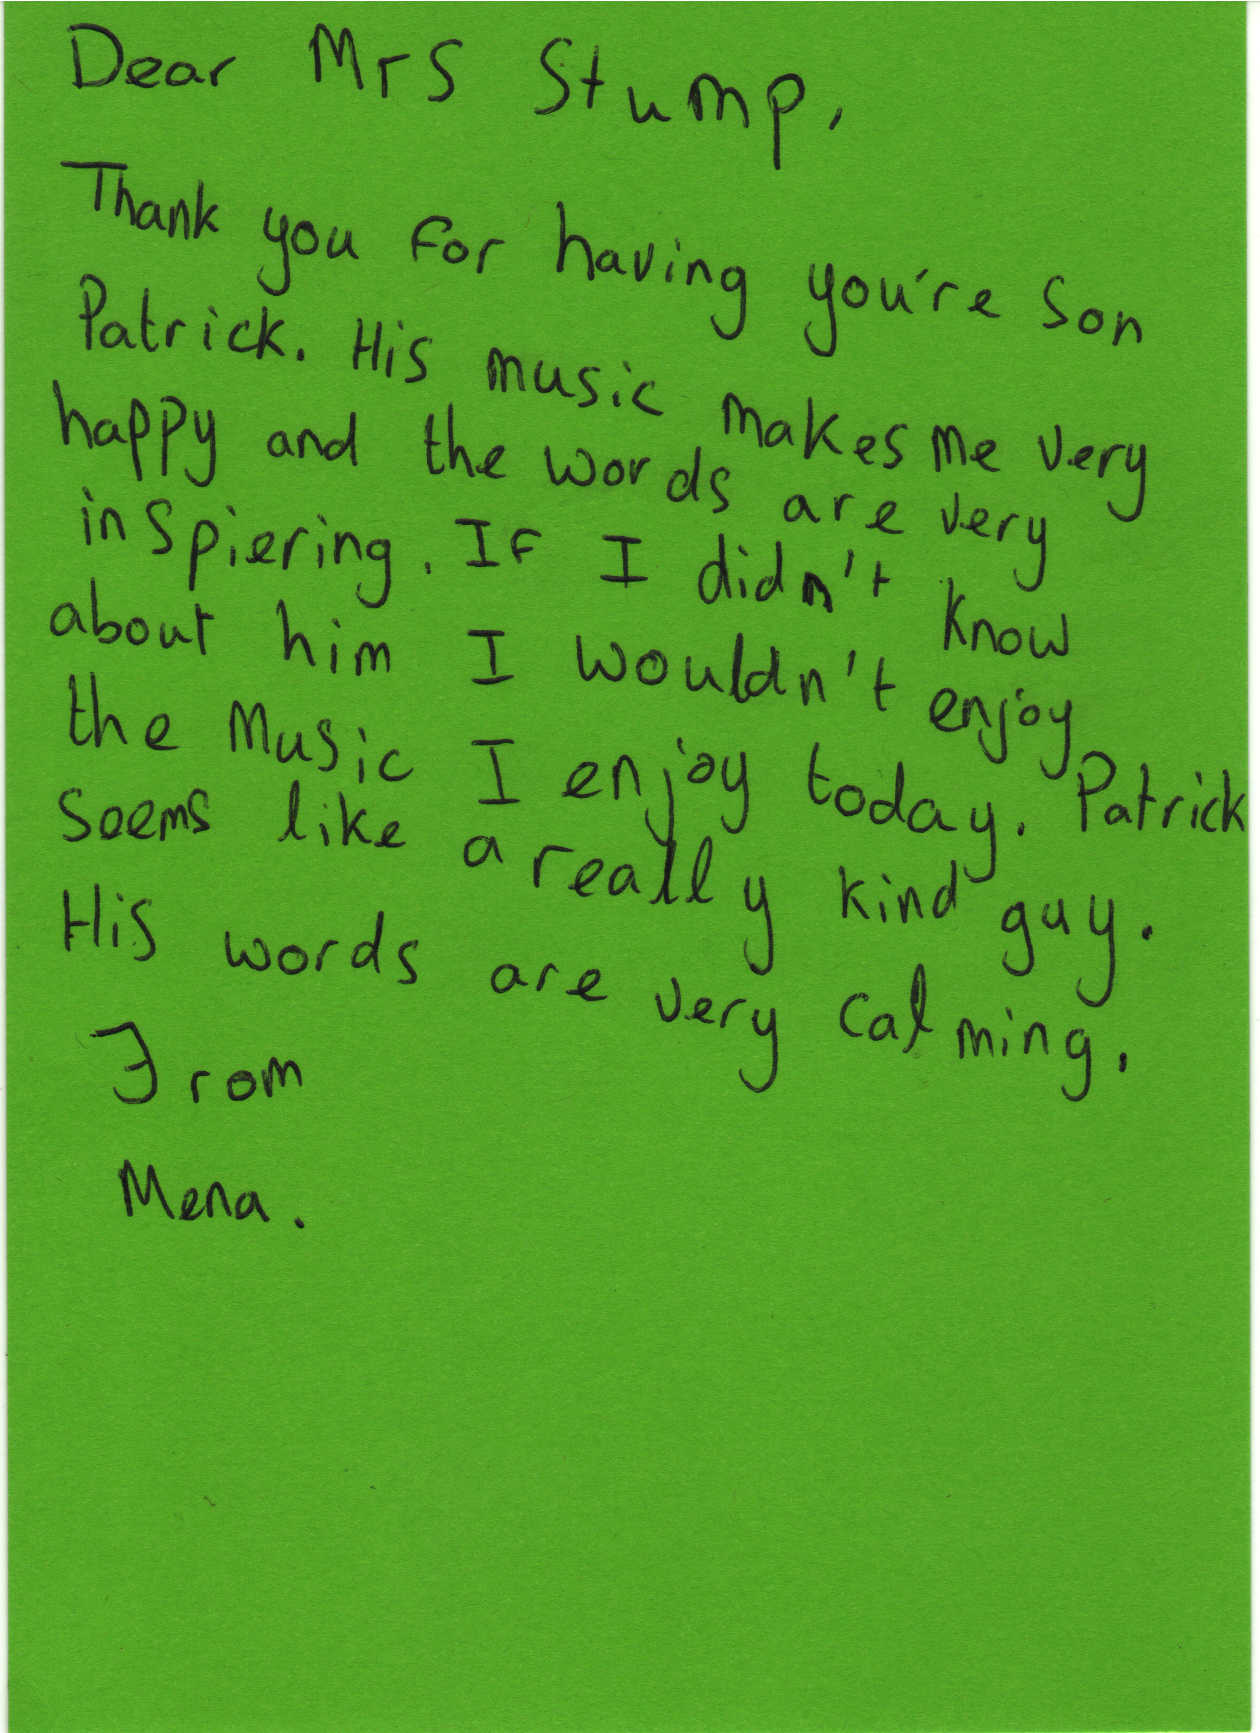 Dear Mrs Stump,
Thank you for having you're son
Patrick. His music makes me very
happy and the words are very
inspiering. If I didn't know
about him I wouldn't enjoy
the Music I enjoy today. Patrick
seems like a really kind guy.
His words are very calming.
From
Mena.